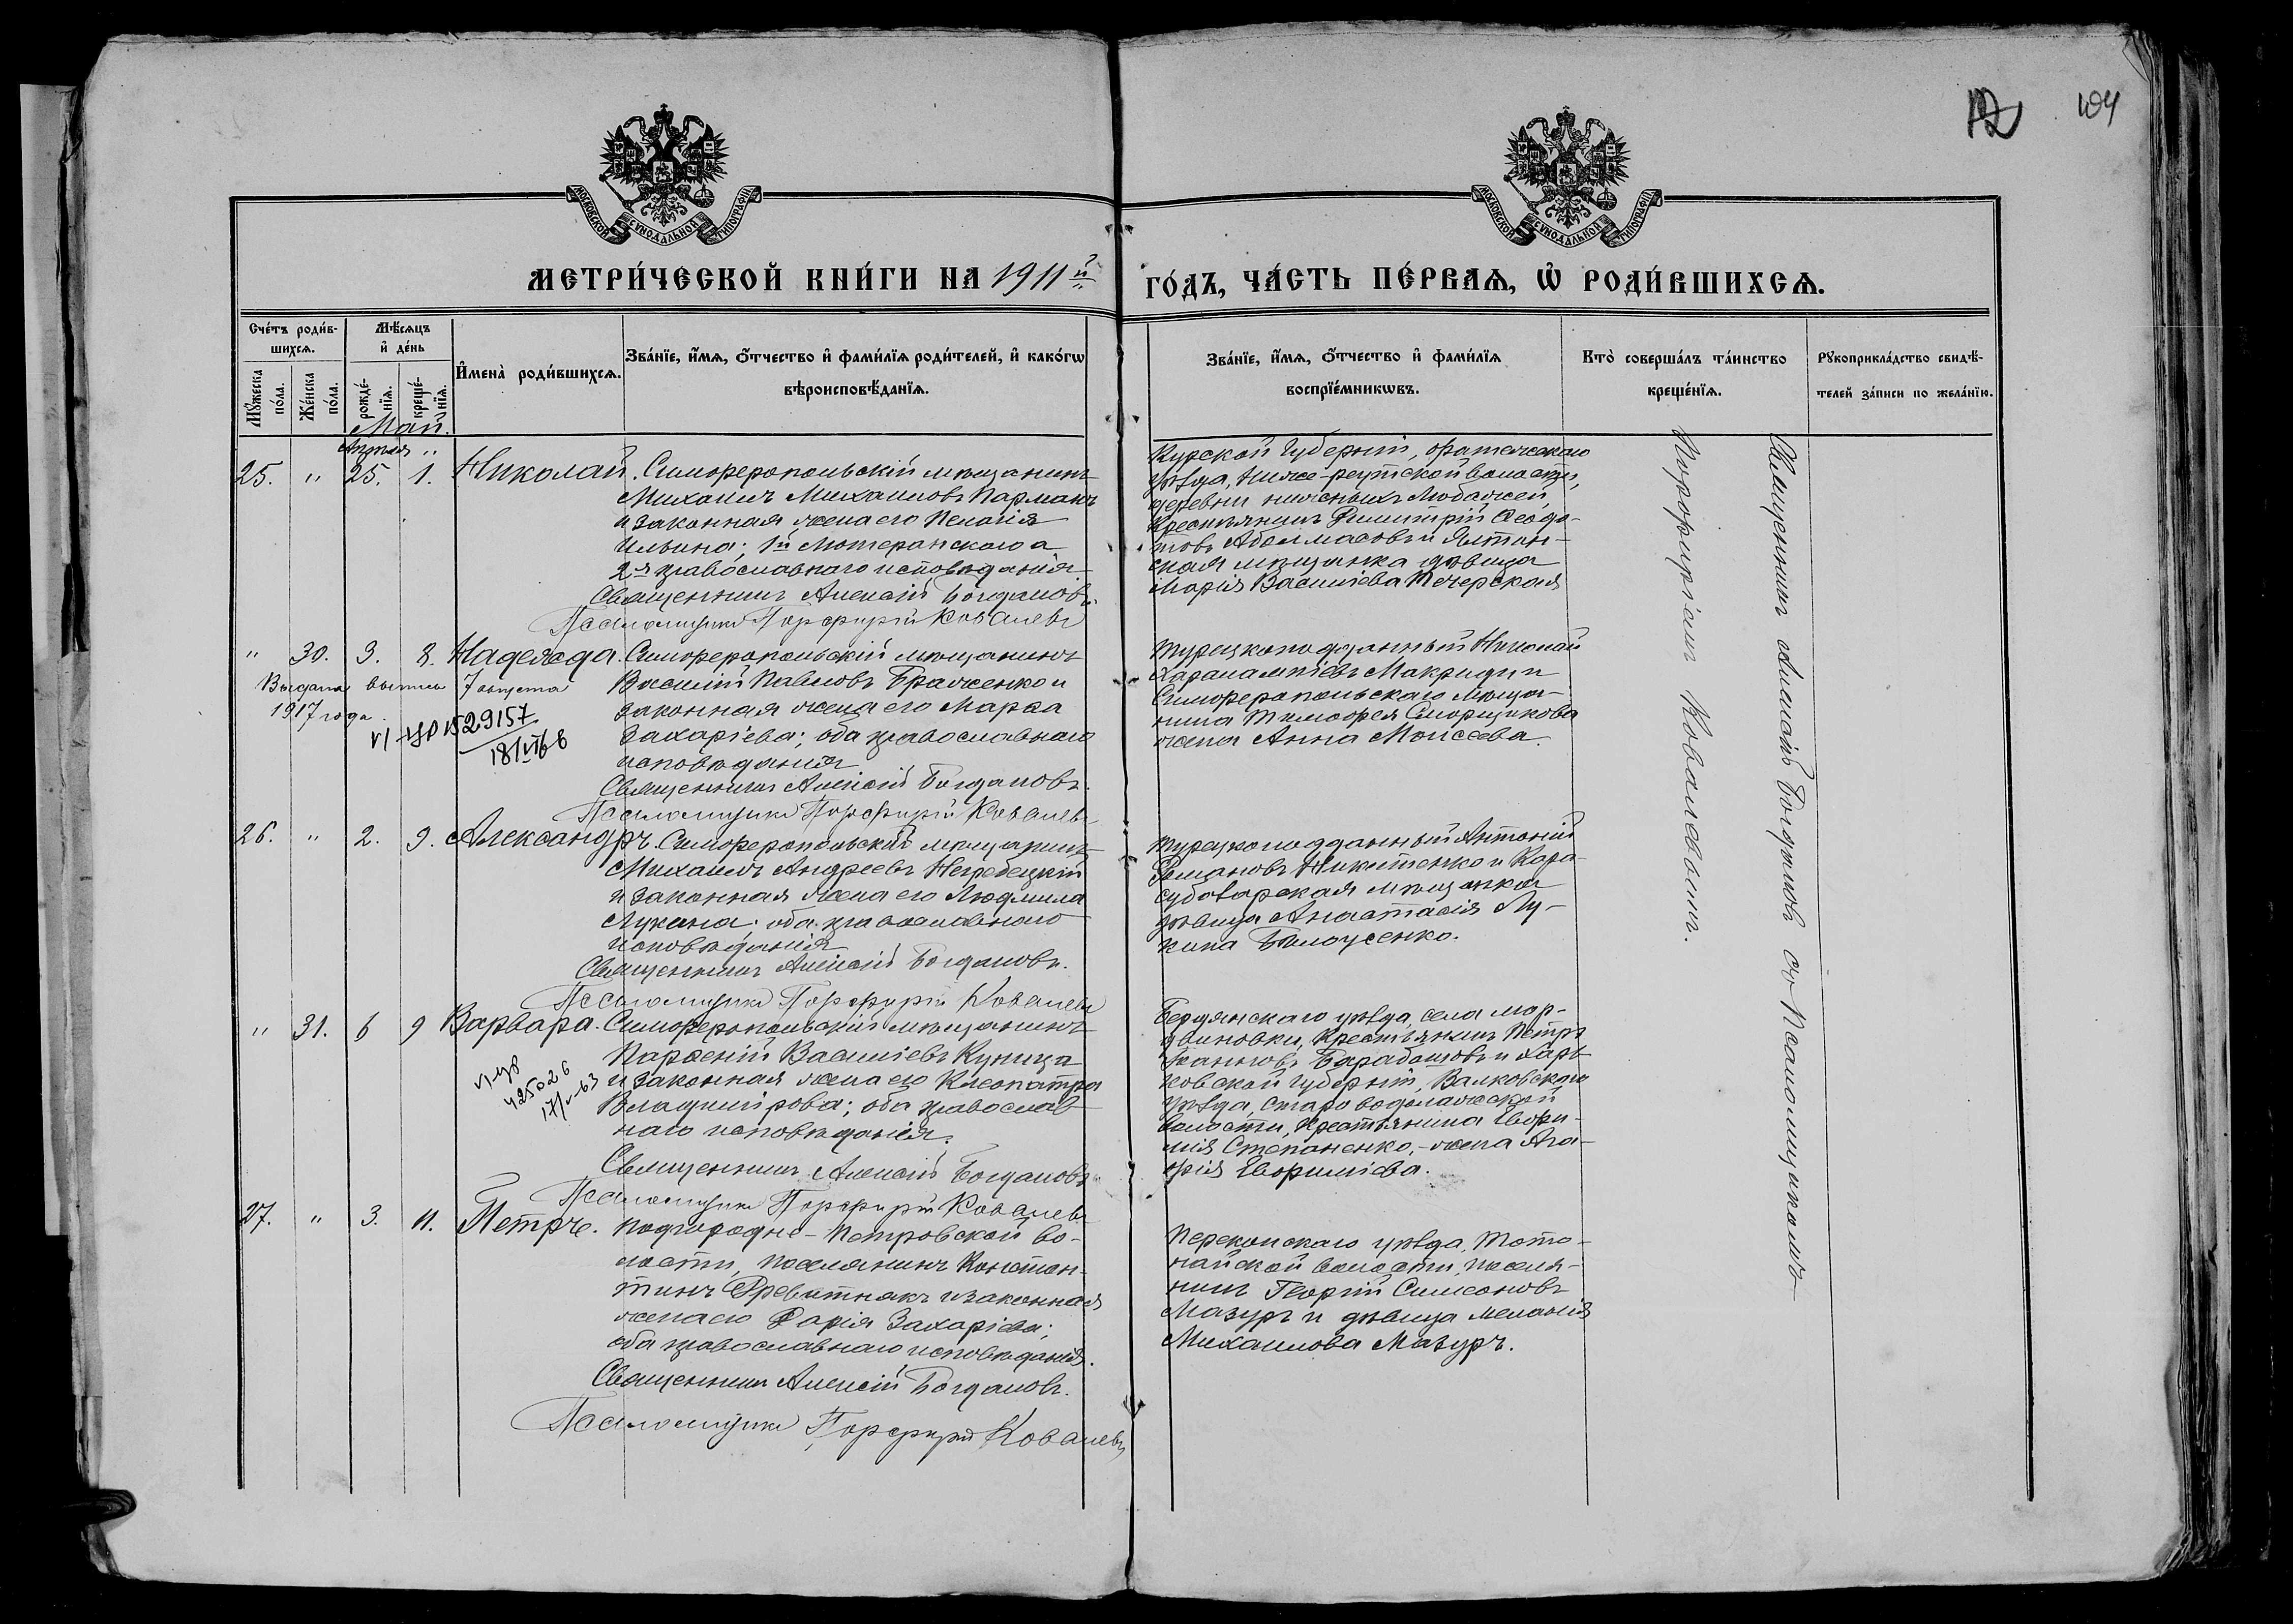 104
МОСКОВСКОЙ СУНОДАЛЬНОЙ ТИПОГРАФІИ
МОСКОВСКОЙ СУНОДАЛЬНОЙ ТИПОГРАФІИ
МЕТРИ́ЧЕСКОЙ КНИ́ГИ НА 1911й
ГО́ДЪ, ЧА́СТЬ ПЕ́РВАѦ, Ѡ҆ РОДИ́ВШИХСѦ.
Сче́тъ роди́в-
шихсѧ.
Мѣ́сѧцъ
и҆ де́нь
И҆мена̀ роди́вшихсѧ.
Зва́нїе, и҆́мѧ, ѻ҆́тчество и҆ фами́лїѧ роди́телей, и҆ како́гѡ
вѣроисповѣ́данїѧ.
Мꙋ́жеска по́ла.
Же́нска по́ла.
рожде́-
нїѧ.
креще́-
нїѧ.
Зва́нїе, и҆́мѧ, ѻ҆́тчество и҆ фами́лїѧ
воспрїе́мникѡвъ.
Кто̀ соверша́лъ та́инство
креще́нїѧ.
Рꙋкоприкла́дство свидѣ́-
телей за́писи по жела́нїю.
Май.
Апрѣля "
25. " 25. 1. Николай. Симферопольскій мѣщанинъ
Михаилъ Михаиловъ Парманъ
и законная жена его Пелагія
Ильина; 1й Лютеранскаго а
2я православнаго исповѣданія
Священникъ Алексій Богдановъ.
Псаломщикъ Порфирій Ковалевъ
Курской Губерніи, Фатежскаго
уѣзда, Ниже-реутской волости,
деревни нижнихъ Любажей
Крестьянинъ Димитрій Ѳеодо-
товъ Аболмасовъ и Ялтин-
ская мѣщанка дѣвица
Марія Васильева Печерская
" 30. 3. 8. Надежда. Симферопольскій мѣщанинъ
Василій Павловъ Браженко и
законная жена его Марѳа
Захаріева; оба православнаго
исповѣданія
Священникъ Алексій Богдановъ.
Псаломщикъ Порфирій Ковалевъ
Выдана выпись 7 августа
1917 года.
1529157
18/VI 68
Турецкоподданный Николай
Харалампіевъ Макриди и
Симферопольскаго мѣща-
нина Тимоѳея Сморщикова
жена Анна Моисеева.
26. " 2. 9. Александръ. Симферопольскій мѣщанинъ
Михаилъ Андреевъ Негребецкій
и законная жена его Людмила
Лукина; оба православнаго
исповѣданія
Священникъ Алексій Богдановъ.
Псаломщикъ Порфирій Ковалевъ
Турецкоподданный Антоній
Романовъ Никитенко и Кара-
субазарская мѣщанка
дѣвица Анастасія Лу-
кина Бѣлоусенко.
" 31. 6 9 Варвара. Симферопольскій мѣщанинъ
Парѳеній Васильевъ Куница
и законная жена его Клеопатра
Владимірова; оба православ-
наго исповѣданія.
Священникъ Алексій Богдановъ.
Псаломщикъ Порфирій Ковалевъ
425026
17/V-63
Бердянскаго уѣзда, села мор-
двиновки, Крестьянинъ Петръ
Барабашовъ и Харь-
ковской Губерніи, Валковскаго
уѣзда, староводолажской
волости, Крестьянина Евфи-
мія Степаненко, - жена Ага-
фія Евфиміева.
27. " 3. 11. Петръ. Подгородне-Петровской во-
лости, поселянинъ Констан-
тинъ Древитнякъ и законная
жена его Дарія Захаріева;
оба православнаго исповѣданія.
Священникъ Алексій Богдановъ.
Псаломщикъ Порфирій Ковалевъ
Перекопскаго уѣзда, Тото-
найской волости, поселя-
нинъ Георгій Симеоновъ
Мазуръ и дѣвица Меланія
Михаилова Мазуръ.
Священникъ Алексій Богдановъ съ Псаломщикомъ
Порфиріемъ Ковалевымъ.